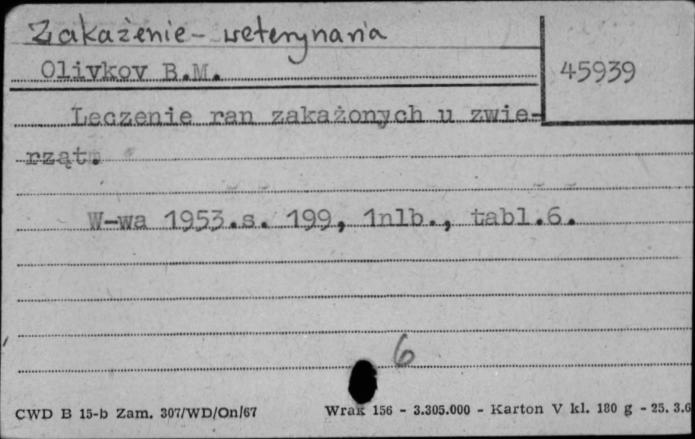 Zakażenie - weterynaria
Olivkov B.M.
45939
Leczenie ran zakażonych u zwie-
rząt.
W-wa 1953.s. 199, 1nlb., tabl.6.
6
CWD B 15-b Zam. 307/WD/On/67
Wrak 156 - 3.305.000 - Karton V kl. 180 g - 25. 3.6